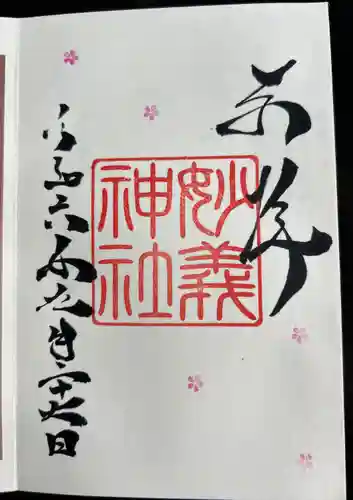 奉拝
妙義
神社
令和六年九月二十九日